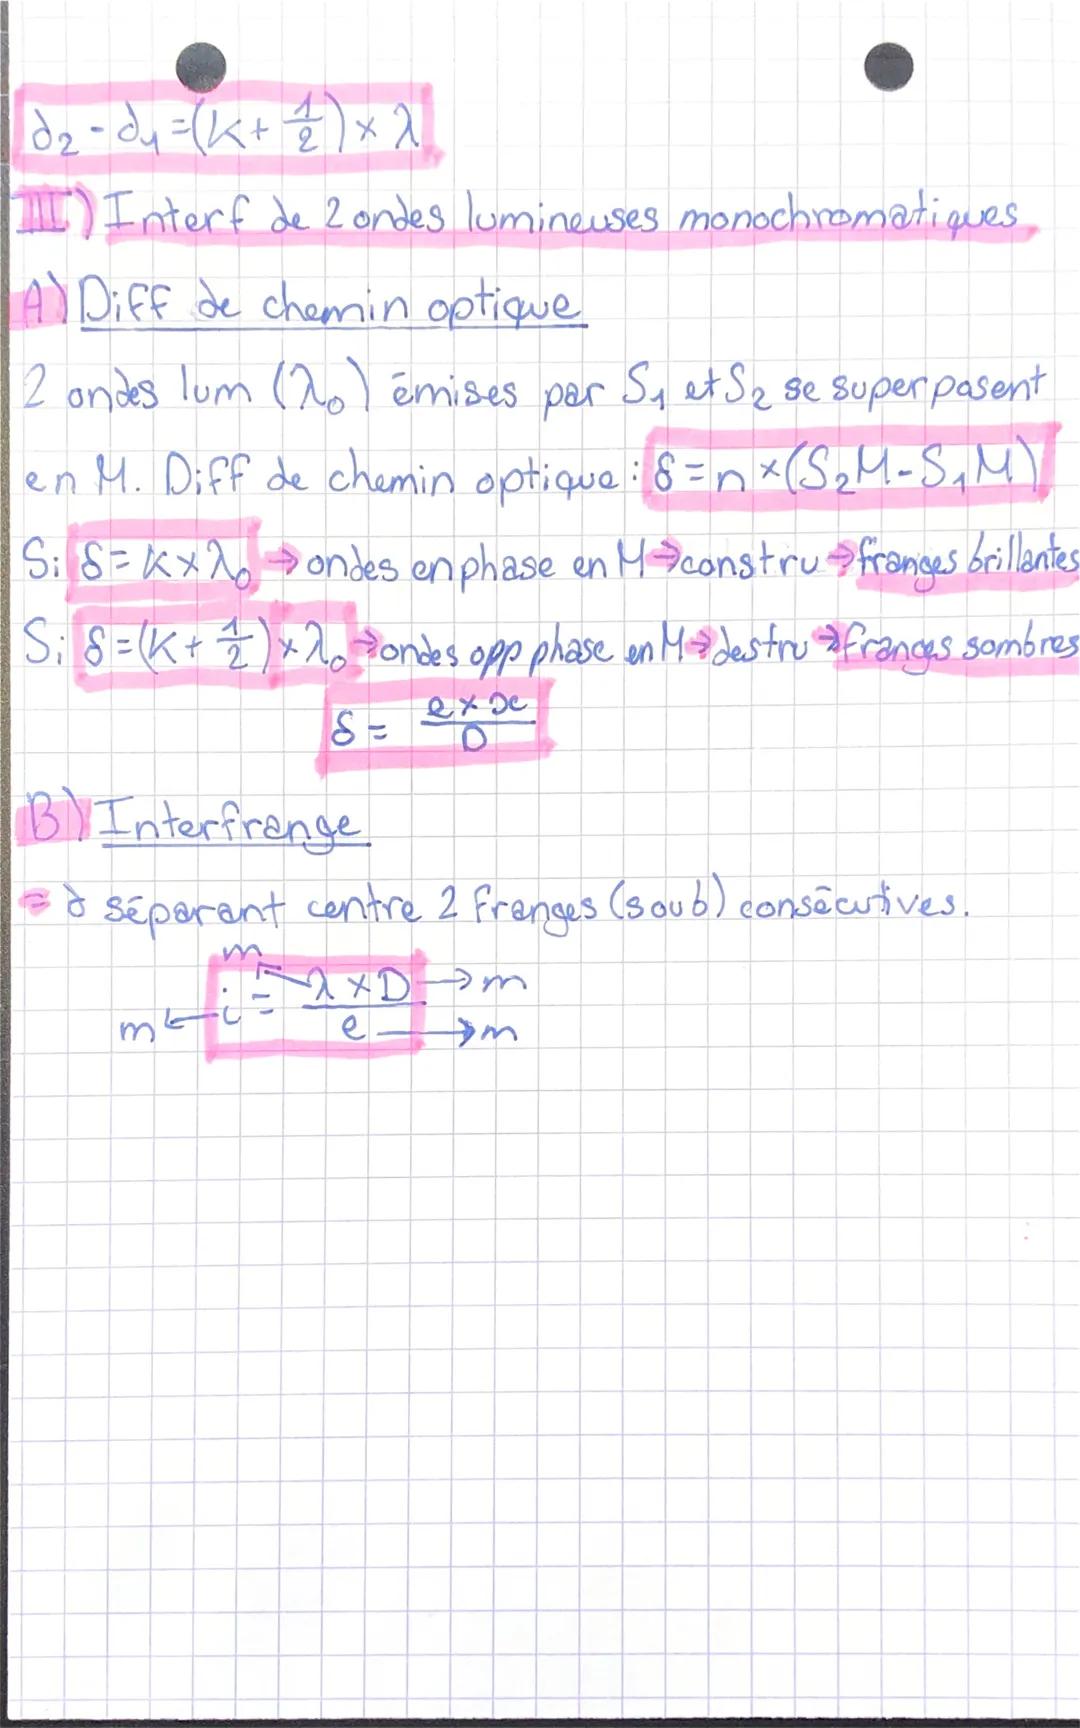 d₂ - d₁ = (k + 1/2) × λ
III) Interf de 2 ondes lumineuses monochromatiques
A) Diff de chemin optique
2 ondes lum (λ₀) émises par S₁ et S₂ se superposent
en M. Diff de chemin optique : δ = n × (S₂M - S₁M)
Si δ = k × λ₀ → ondes en phase en M → constru → franges brillantes
Si δ = (k + 1/2) × λ₀ → ondes opp phase en M → destru → franges sombres
δ = e × x / D
B) Interfrange
= d séparant centre 2 franges (s ou b) consécutives.
m
i = λ × D / e → m
m ← → m